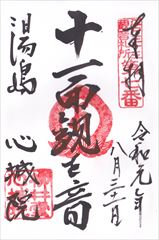 奉拝
令和元年
八月三十一日
十一面観世音
湯島
心城院